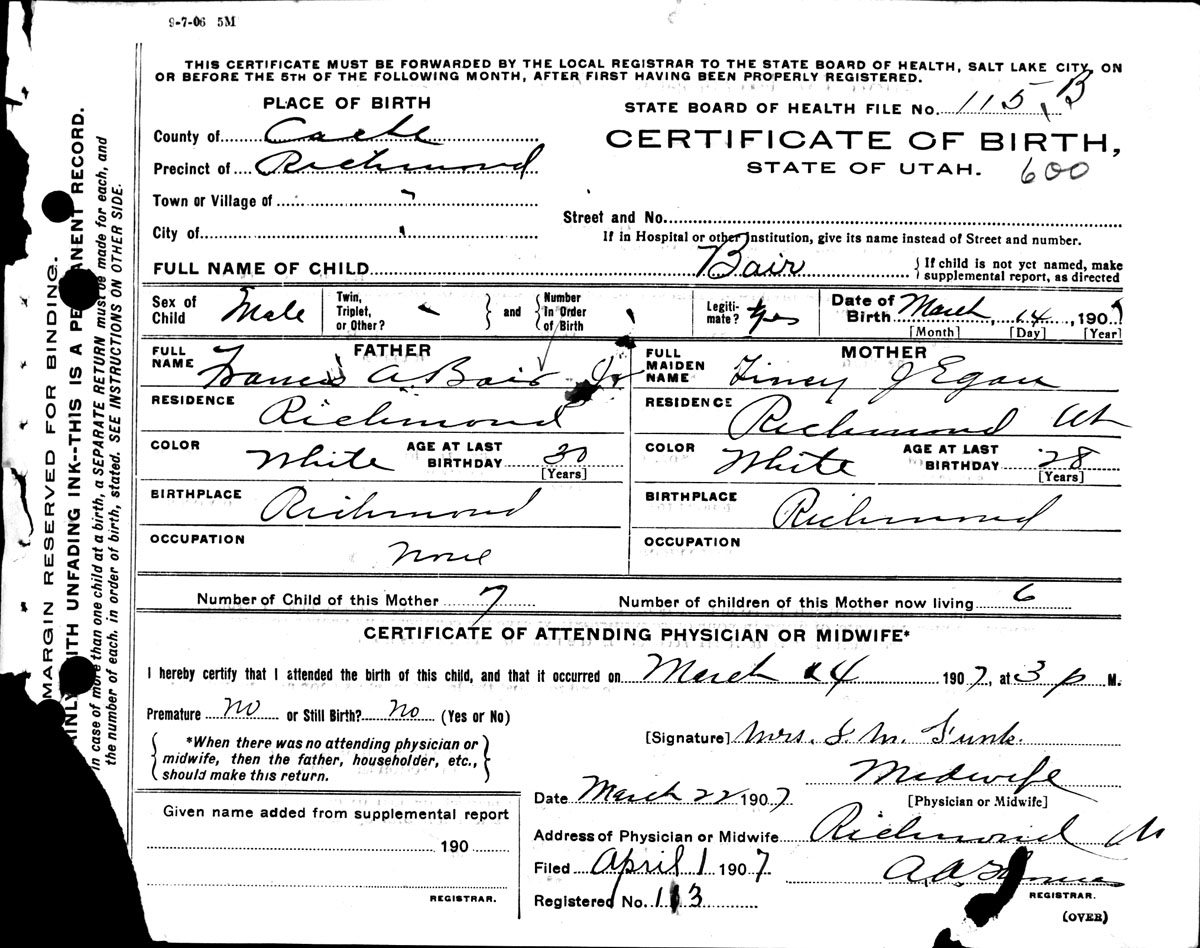 9-7-06 5M
THIS CERTIFICATE MUST BE FORWARDED BY THE LOCAL REGISTRAR TO THE STATE BOARD OF HEALTH, SALT LAKE CITY, ON
OR BEFORE THE 5TH OF THE FOLLOWING MONTH, AFTER FIRST HAVING BEEN PROPERLY REGISTERED.
PLACE OF BIRTH
STATE BOARD OF HEALTH FILE No. 115, B
County of Cache
CERTIFICATE OF BIRTH,
Precinct of Richmond
STATE OF UTAH. 600
Town or Village of
Street and No.
City of
If in Hospital or other Institution, give its name instead of Street and number.
FULL NAME OF CHILD Bair { If child is not yet named, make
supplemental report, as directed
Sex of Child Male Twin, Triplet, or Other? } and { Number In Order of Birth Legiti-mate? Yes Date of Birth March, 14, 1907
[Month] [Day] [Year]
FATHER
MOTHER
FULL NAME Francis A. Bair Jr
FULL MAIDEN NAME J Egan
RESIDENCE Richmond
RESIDENCE Richmond Ut
COLOR White AGE AT LAST BIRTHDAY 30 [Years]
COLOR White AGE AT LAST BIRTHDAY 28 [Years]
BIRTHPLACE Richmond
BIRTHPLACE Richmond
OCCUPATION None
OCCUPATION
Number of Child of this Mother 7 Number of children of this Mother now living 6
CERTIFICATE OF ATTENDING PHYSICIAN OR MIDWIFE*
I hereby certify that I attended the birth of this child, and that it occurred on March 14 1907, at 3 p M.
Premature no or Still Birth? no (Yes or No)
{ *When there was no attending physician or
midwife, then the father, householder, etc.,
should make this return. }
[Signature] Mrs. S. M. Funk
Midwife
[Physician or Midwife]
Date March 22 1907
Given name added from supplemental report
190
REGISTRAR.
Address of Physician or Midwife Richmond Ut
Filed April 1 1907 A. A.
REGISTRAR.
Registered No. 113
(OVER)
MARGIN RESERVED FOR BINDING.
WITH UNFADING INK--THIS IS A PERMANENT RECORD.
In case of more than one child at a birth, a SEPARATE RETURN must be made for each, and
the number of each, in order of birth, stated. SEE INSTRUCTIONS ON OTHER SIDE.